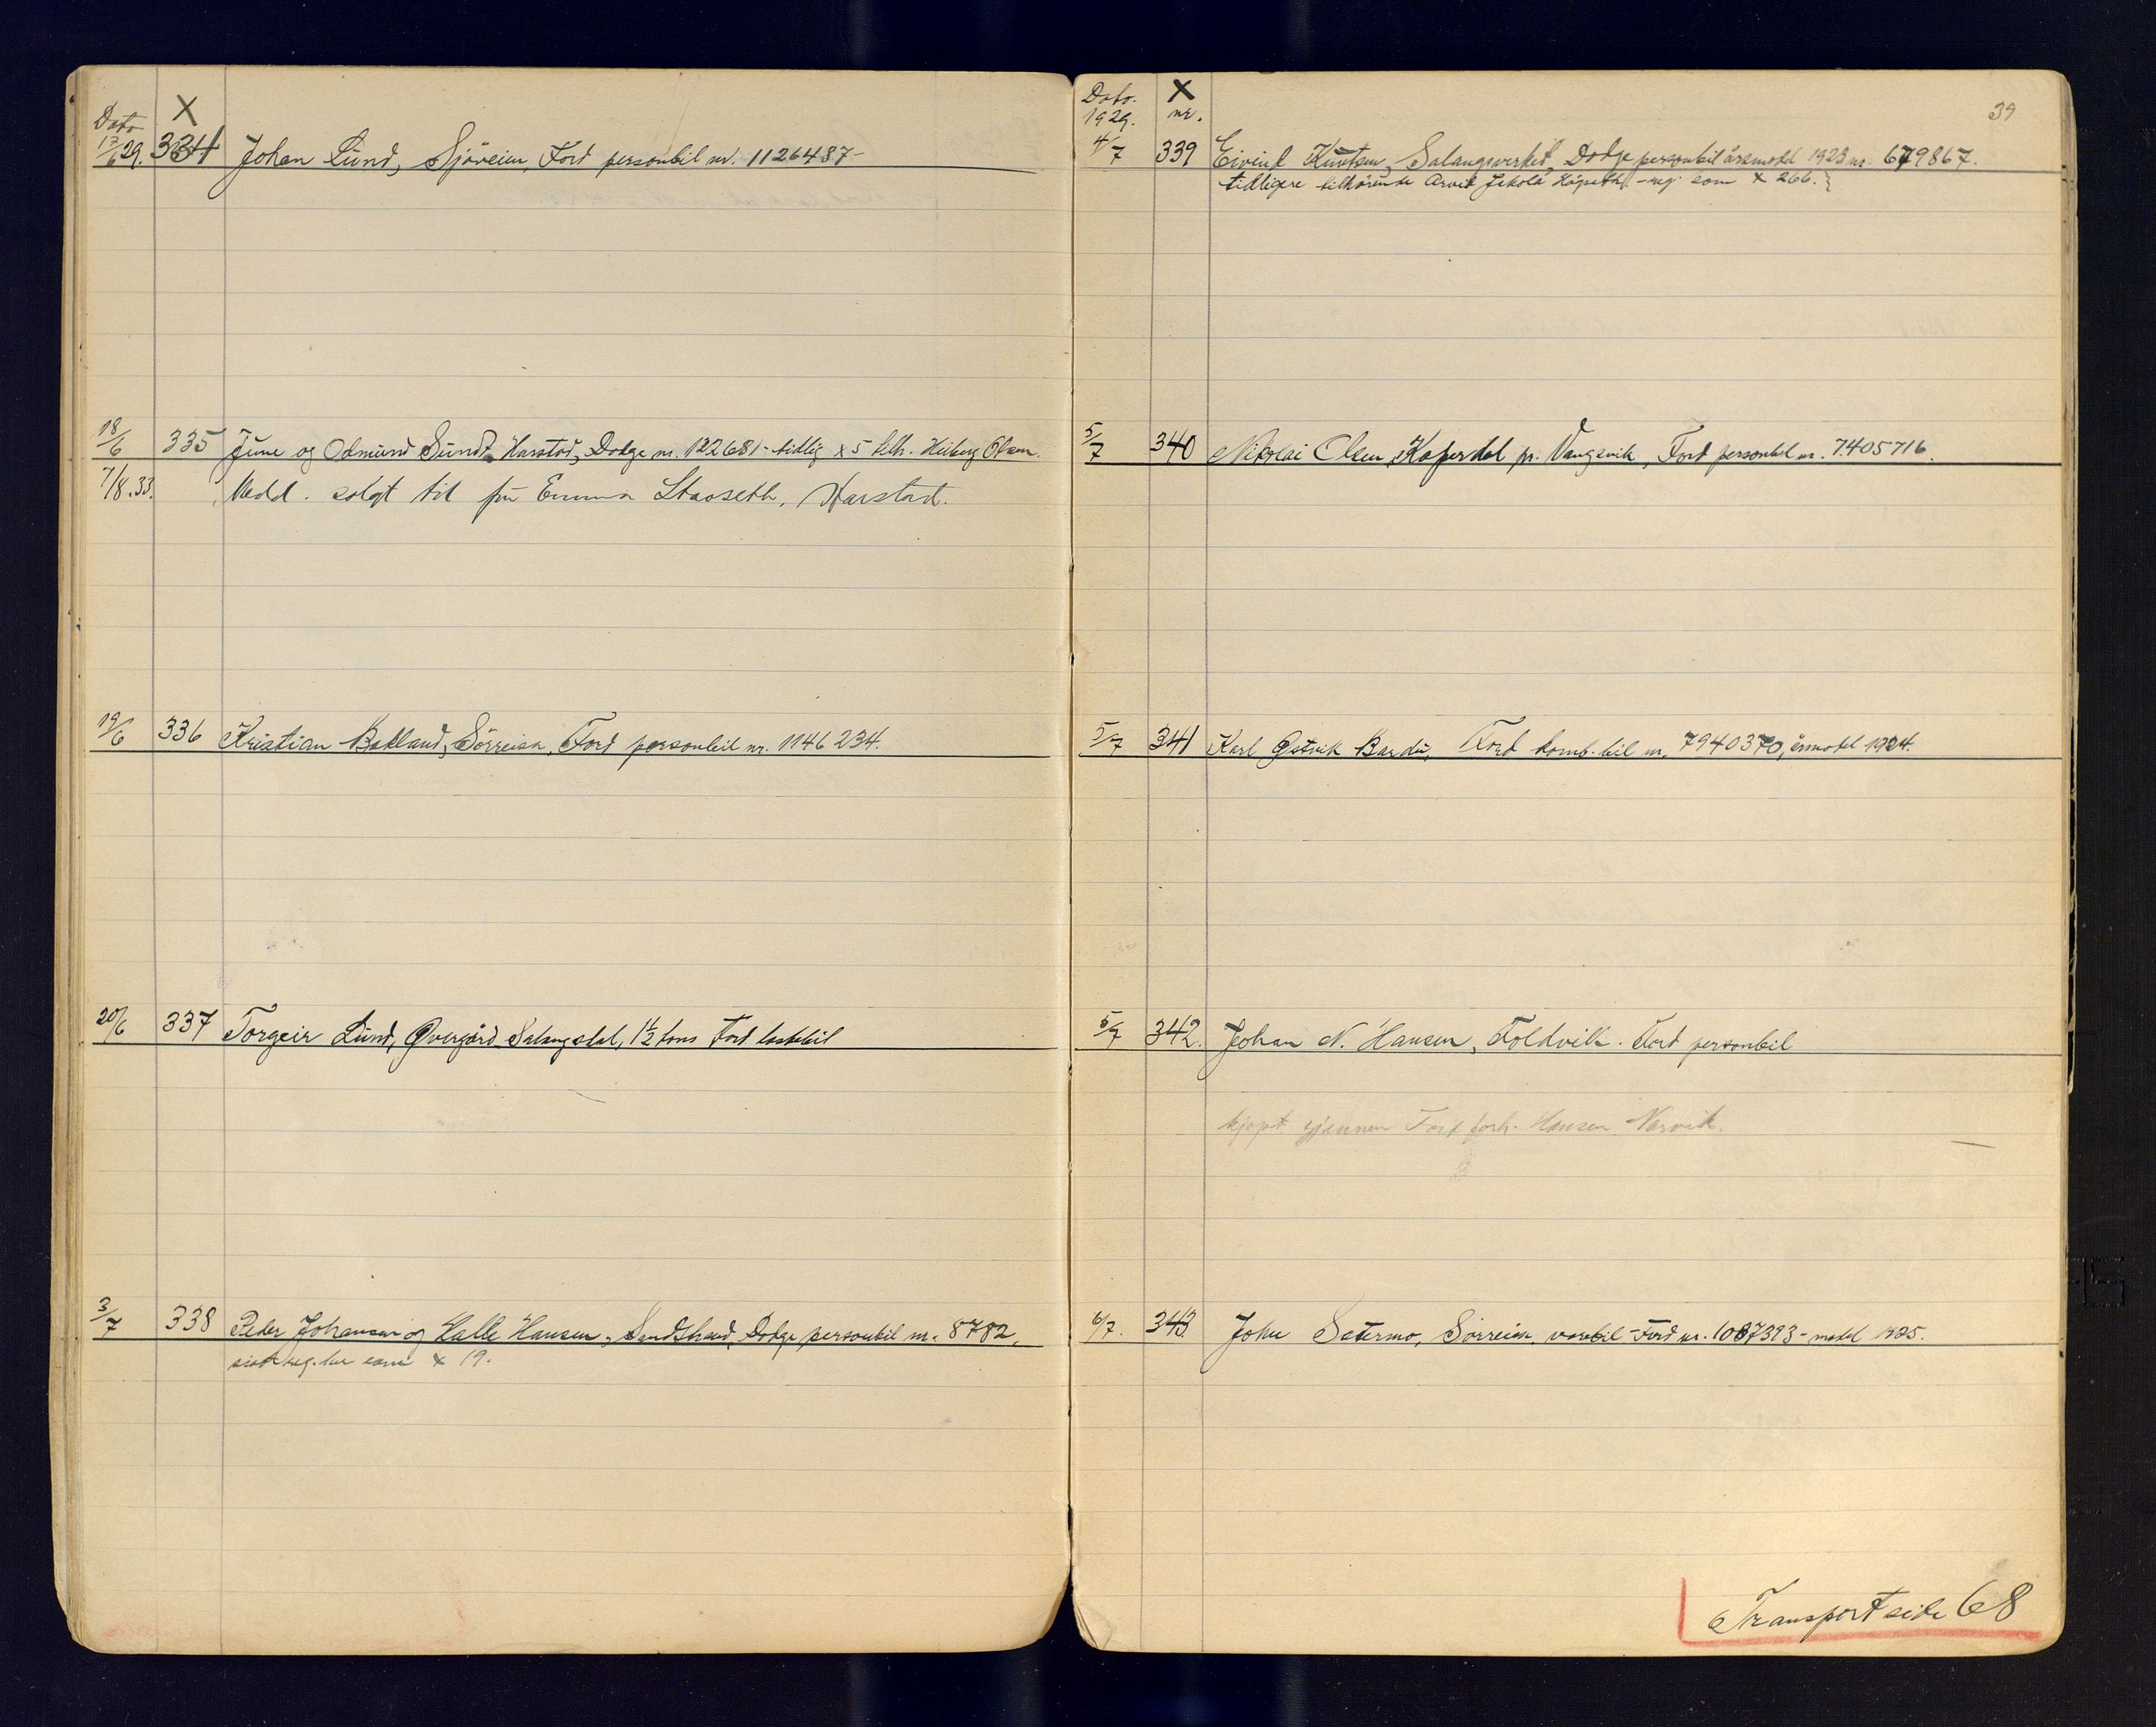 Dato X
13/6 29. 334 Johan Lund, Sjöveien, Ford personbil nr. 1126487-
18/6 335 June og Odmund Sund, Harstad, Dodge nr. 122681 - tidlig x 5 tilh. Heiberg Olsen.
7/8.33. Medd. solgt til fru Emma Staoseth, Harstad.
19/6 336 Kristian Bakland, Sörreisa, Ford personbil nr. 1146234.
20/6 337 Torgeir Lund, Øvergård Salangsdal, 1½ tons Ford lastebil
3/7 338 Peder Johansen og Halle Hansen, Sandstrand, Dodge personbil nr. 8782,
sist reg. her som x 19.
Dato. X 39
1929. nr.
4/7 339 Eivind Knutsen, Salangsverket, Dodge personbil årsmodel 1923 nr. 679867.
tidligere tilhörende Arvid Jekola - reg. som x 266.
5/7 340 Nikolai Olsen, Kaperdal pr. Vangsvik, Ford personbil nr. 7405716.
5/7 341 Karl Østvik Bardu, Ford komb. bil nr. 7940370, årsmodel 1924.
5/7 342. Johan N. Hansen, Foldvik. Ford personbil
kjøpt gjennem Ford forh. Hansen Narvik.
6/7. 343. John Sætermo, Sörreisa, varebil - Ford nr. 1087393 - model 1925.
Transport side 68